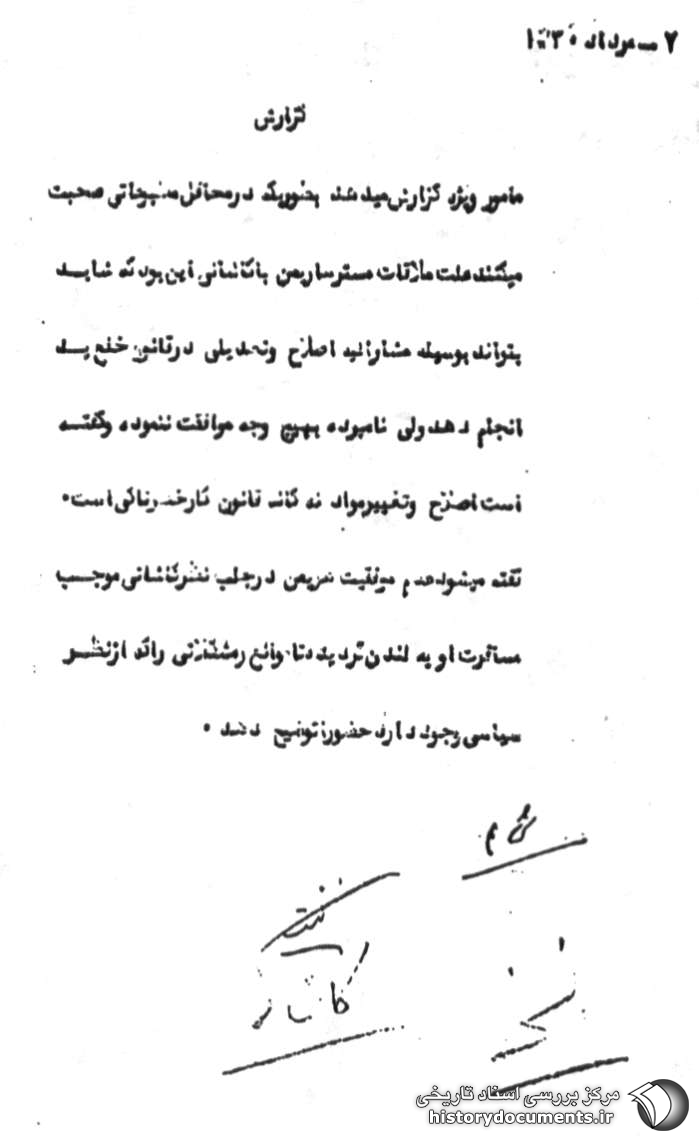 ۲ مرداد ۱۳۳۰
گزارش
مامور ویژه گزارش میدهد بطوریکه در محافل مطبوعاتی صحبت
میکنند علت ملاقات مستر هاریمن با کاشانی این بود که شاید
بتواند بوسیله مشارالیه اصلاح وتعدیلی در قانون خلع ید
انجام دهد ولی نامبرده بهیچ وجه موافقت ننموده وگفته
است اصلاح وتغییر مواد نه گانه قانون کار خطرناکی است۰
گفته میشود عدم موفقیت هریمن در جلب نظر کاشانی موجب
مسافرت او به لندن گردیده تا موانع ومشکلاتی را که از نظر
سیاسی وجود دارد حضورا توضیح دهد ۰
نفت
کاشانی
مرکز بررسی اسناد تاریخی
historydocuments.ir